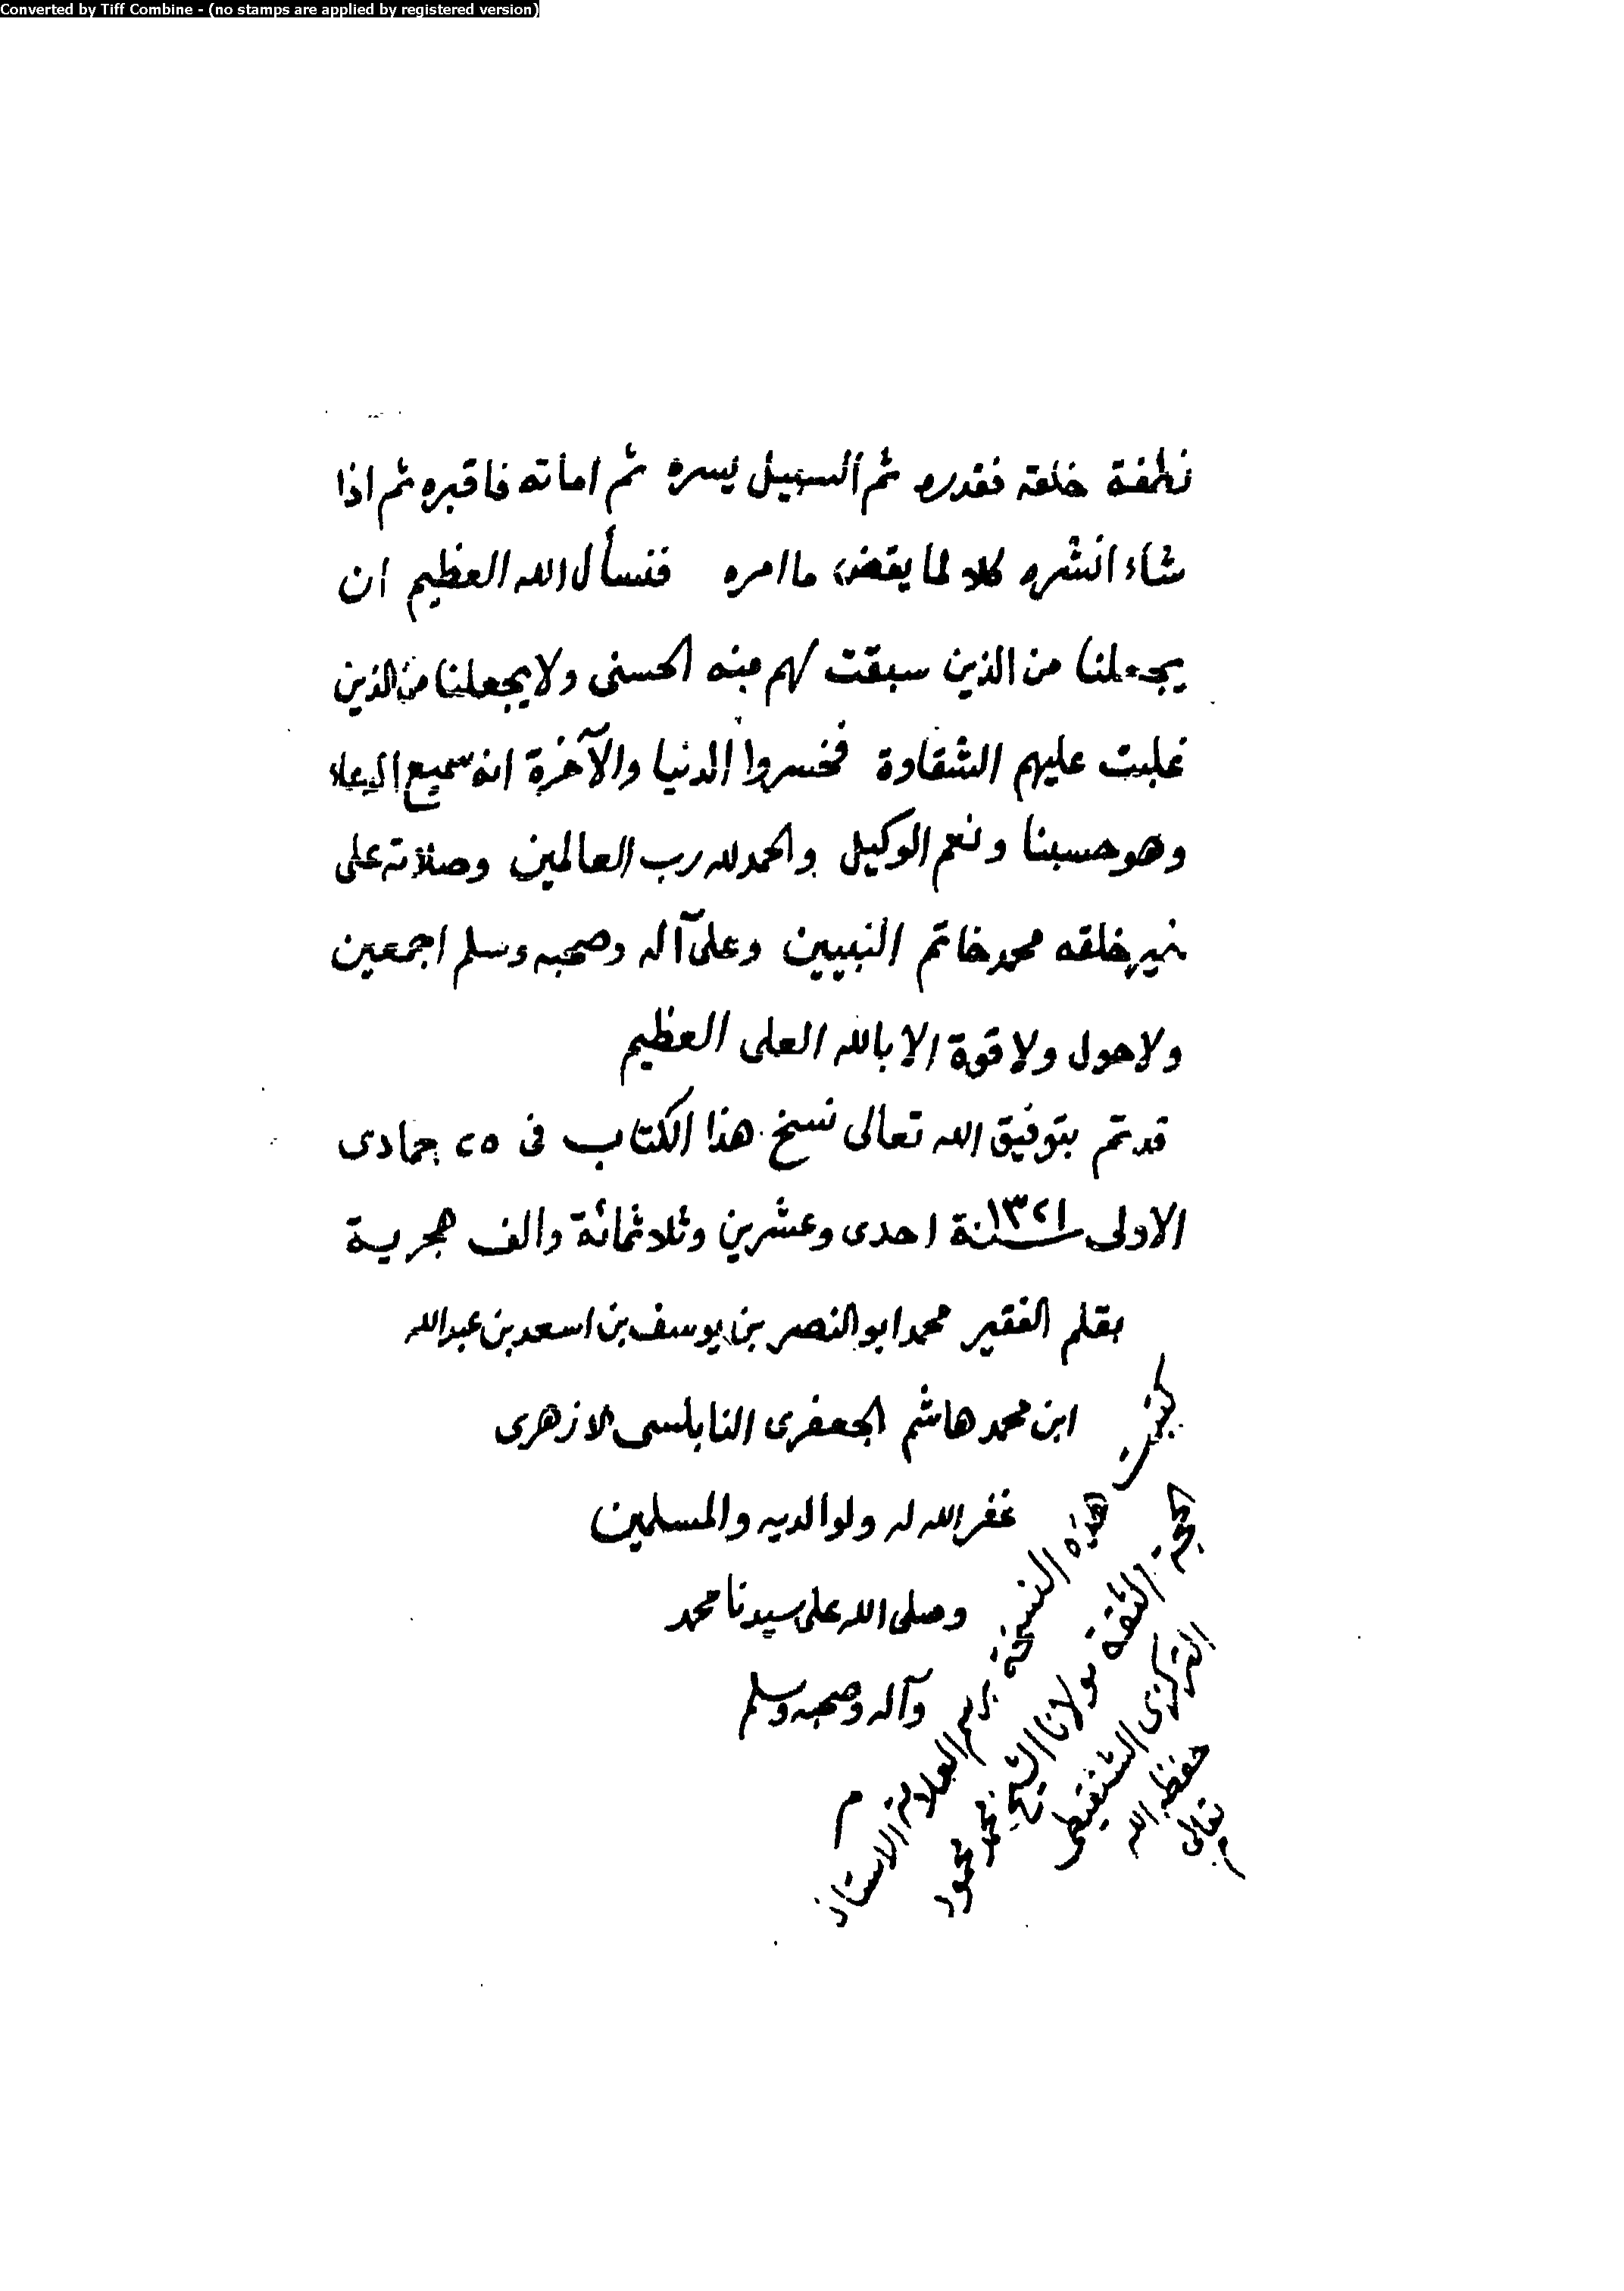 Converted by Tiff Combine - (no stamps are applied by registered version)
نطفة خلقه فقدره ثم السبيل يسره ثم اماته فاقبره ثم اذا
شاء انشره كلا لما يقض ما امره فنسأل الله العظيم ان
يجعلنا من الذين سبقت لهم منه الحسنى ولا يجعلنا من الذين
غلبت عليهم الشقاوة فخسروا الدنيا والآخرة انه سميع الدعاء
وهو حسبنا ونعم الوكيل والحمد لله رب العالمين وصلاته على
خير خلقه محمد خاتم النبيين وعلى آله وصحبه وسلم اجمعين
ولا حول ولا قوة الا بالله العلى العظيم
قد تم بتوفيق الله تعالى نسخ هذا الكتاب فى ٢٥ جمادى
الاولى سنة ١٣٢١ احدى وعشرين وثلاثمائة والف هجرية
بقلم الفقير محمد ابو النصر بن يوسف بن اسعد بن عبد الله
ابن محمد هاشم الجعفرى النابلسى الازهرى
غفر الله له ولوالديه والمسلمين
وصلى الله على سيدنا محمد
وآله وصحبه وسلم
م
كتبت هذه النسخة برسم العلامة الاستاذ
الحجة الثقة مولانا الشيخ محمد محمود
التركزى الشنقيطى
حفظه الله
تعالى